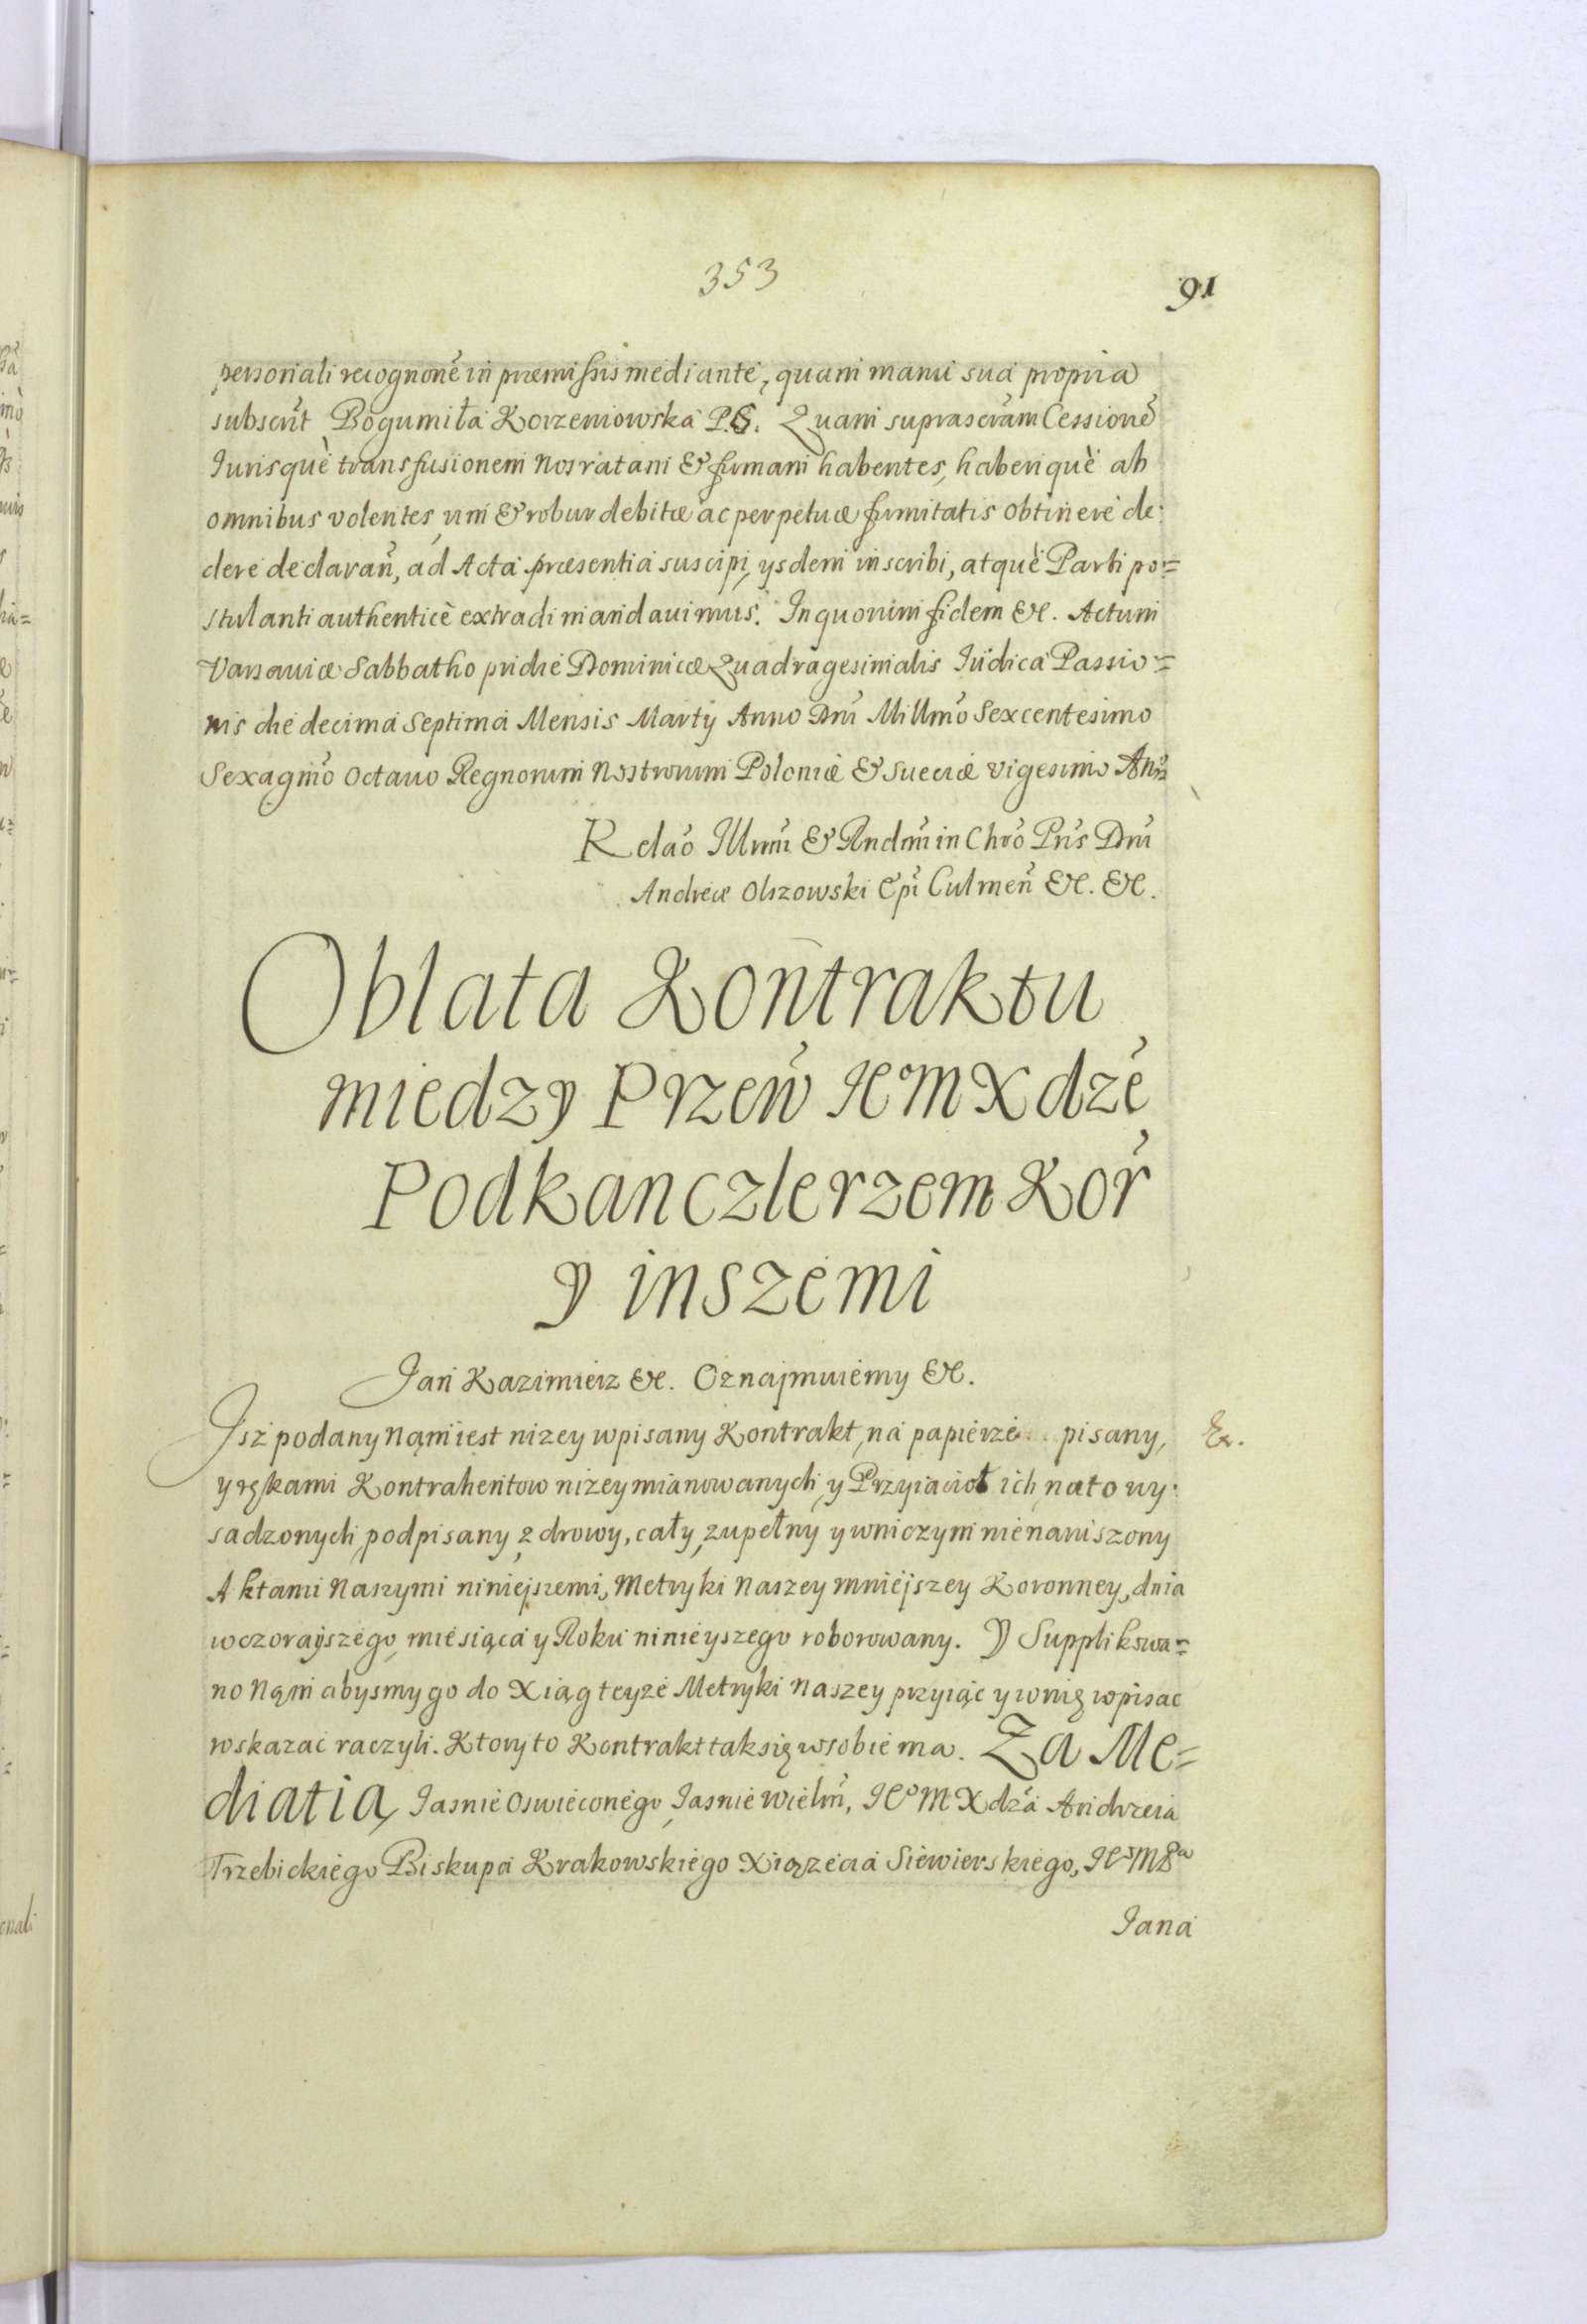 353
91
personali recognoñe in præmissis mediante, quam manu sua propria
subscr̃it Bogumiła Korzeniowska P.S. Quam suprascr̃am Cessioñe
Iurisquè transfusionem nos ratam & firmam habentes, haberiquè ab
omnibus volentes, uim & robur debitæ ac perpetuæ firmitatis obtinere de-
cere declarañ, ad Acta præsentia suscipi, ysdem inscribi, atquè Parti po=
stulanti authenticè extradi mandauimus. In quorum fidem &c. Actum
Varsauiæ Sabbatho pridie Dominicæ Quadragesimalis Iudica Passio=
nis die decima septima Mensis Martÿ Anno Dñi Millm̃o Sexcentesimo
Sexagm̃o octauo Regnorum Nostrorum Poloniæ & Sueciæ vigesimo Anñ
Relaõ Illm̃i & Rndm̃i in Chrõ Pr̃is Dñi
Andreæ Olszowski Ep̃i Culmeñ &c. &c.
Oblata Kontraktu
miedzy Przew̃ JeºM X dzẽ
Podkanczlerzem Kor̃
y inszemi
Jan Kazimierz &c. Oznajmuiemy &c.
Jsz podany nąm iest nizey wpisany Kontrakt, na papierze pisany,
&.
y ręskami Kontrahentow nizey mianowanych, y Przyiacioł ich na to wy-
sadzonych, podpisany, zdrowy, cały, zupełny y wniczym nienaruszony
Aktami Naszymi niniejszemi, Metryki Naszey mniejszey Koronney, dnia
wczorayszego, miesiąca y Roku ninieyszego roborowany. Y Supplikowa=
no Nąm abysmy go do Xiąg teyze Metryki Naszey przyiąc y wnię wpisac
wskazac raczyli. Ktory to Kontrakt tak się wsobie ma. Za Me=
diatią Iasnie Oswieconego Iasnie Wielm̃, JeºM X dzã Andrzeia
Trzebickiego Biskupa Krakowskiego Xiązecia Siewierskiego, JeºM Pa
Iana